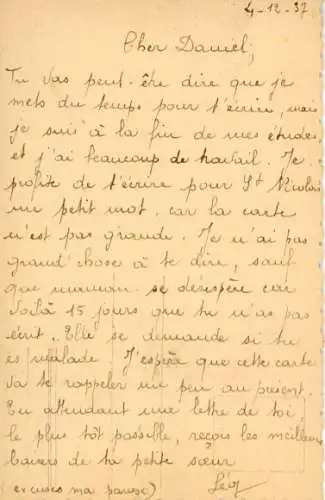 4-12-37
Cher Daniel,
Tu vas peut-être dire que je
mets du temps pour t'écrire, mais
je suis à la fin de mes études,
et j'ai beaucoup de travail. Je
profite de t'écrire pour St Nicolas
un petit mot, car la carte
n'est pas grande. Je n'ai pas
grand'chose à te dire, sauf
que maman se désespère car
voilà 15 jours que tu n'as pas
écrit. Elle se demande si tu
es malade. J'espère que cette carte
va te rappeler un peu au présent.
En attendant une lettre de toi
le plus tôt possible, reçois les meilleurs
baisers de ta petite sœur
(excuses ma